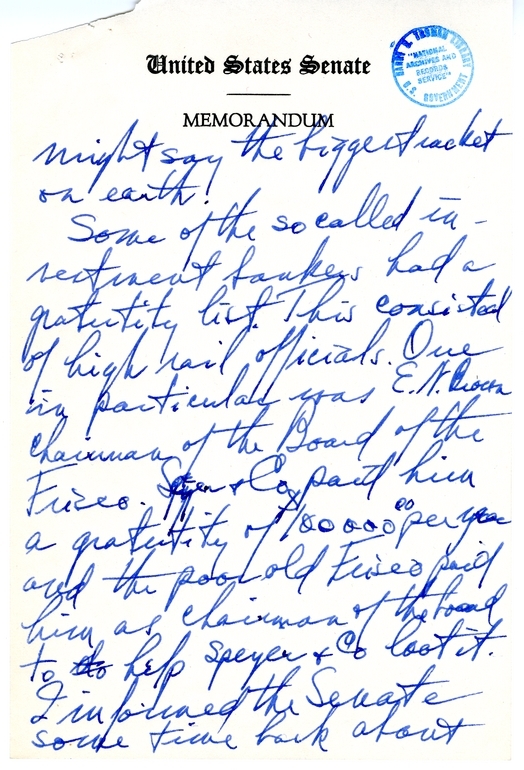 United States Senate
MEMORANDUM
HARRY S. TRUMAN LIBRARY
"NATIONAL
ARCHIVES AND
RECORDS
SERVICE"
might say the biggest racket
on earth!
Some of the so called in-
vestment bankers had a
gratutity list. This consisted
of high rail officials. One
in particular was E.N. Brown
chairman of the Board of the
Frisco. Speyer & Co paid him
a gratutity of $10000000 per year
and the poor old Frisco paid
him as chairman of the board
to help Speyer & Co loot it.
I informed the Senate
some time back about